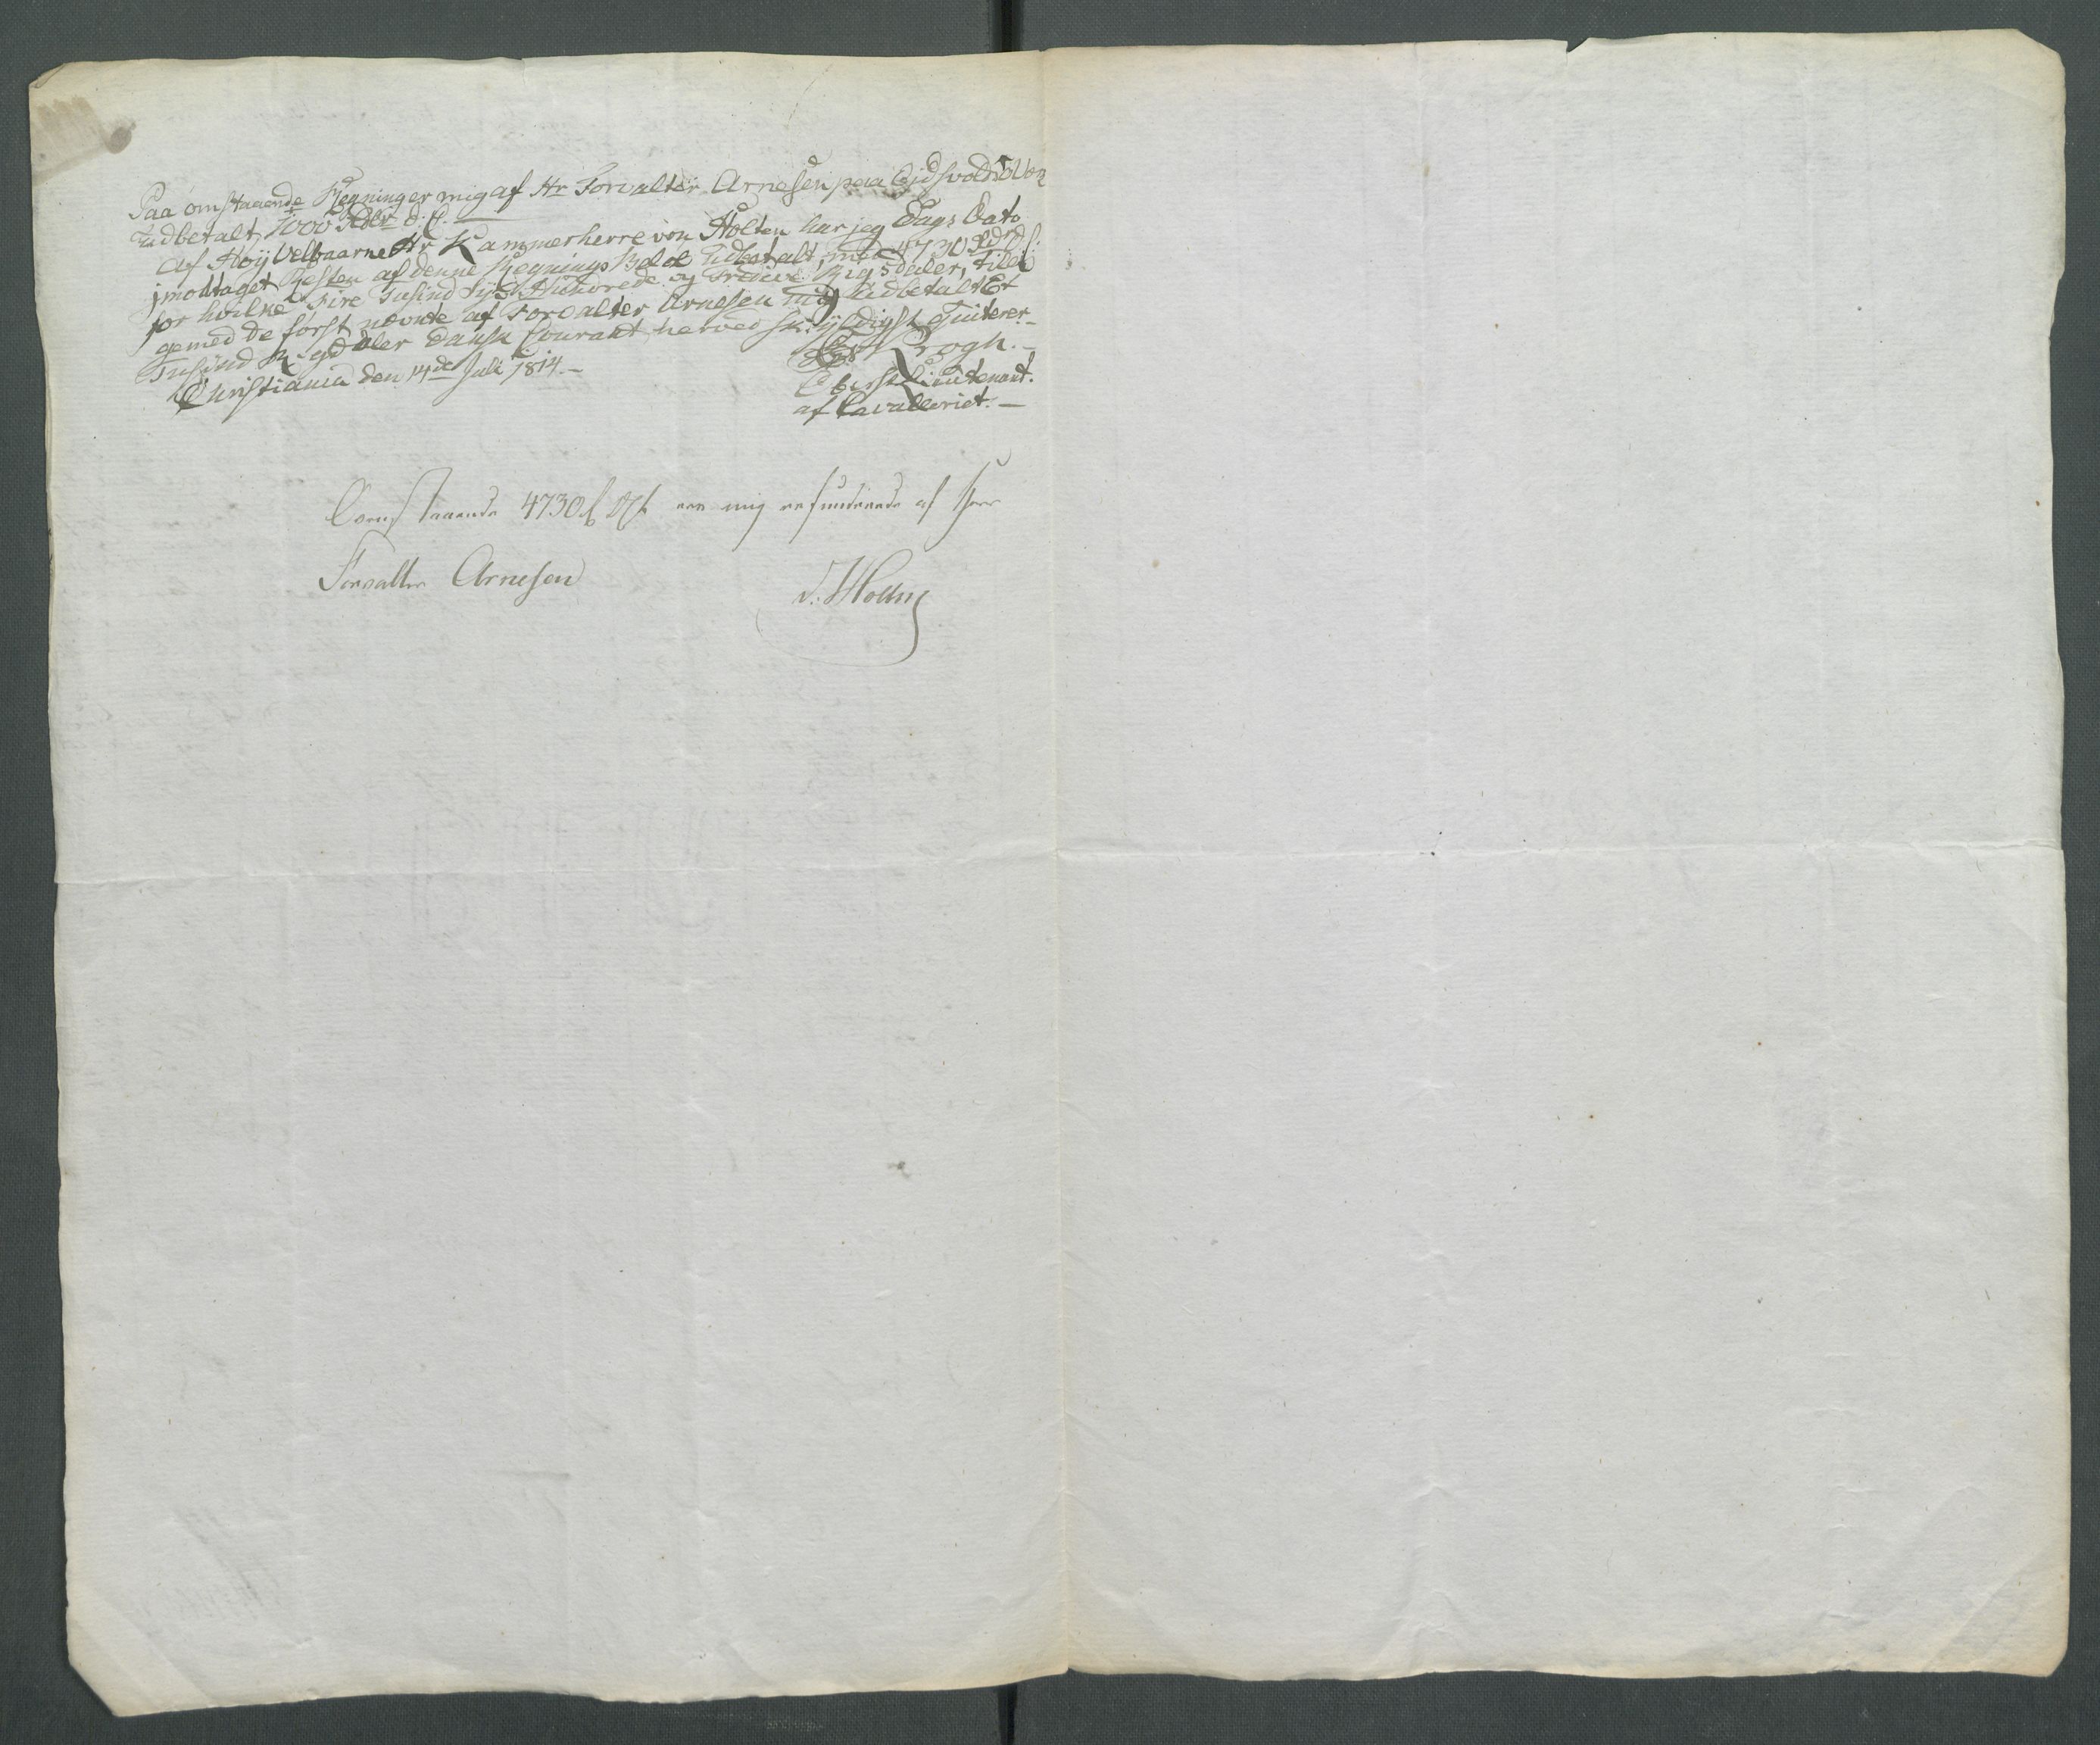 Paa omstaaende Regninger mig af Hr Forvalter Arnesen paa Eidsvold
Udbetalt, 1000 Rdlr d. C.
Af Høÿ Velbaarne Hr Kammerherre von Holten har jeg Dags Dato
imodtaget Resten af denne Regnings Beløb Udbetalt, med 4730 Rd d. C:
for hvilke Fire Tusind Sÿv Hundrede og Tredive Rigsdaler, tilli
gemed de først nævnte af Forvalter Arnesen mig Udbetalt Et
Tusind Rigsdaler Dansk Courant, herved skÿldigst Quiterer.–
Christiania den 14de Juli 1814.–
Krogh.–
Oberstlieutenant.
af Cavalleriet.–
Ovenstaaende 4730 ere mig refunderede af Herr
Forvalter Arnesen
v. Holten